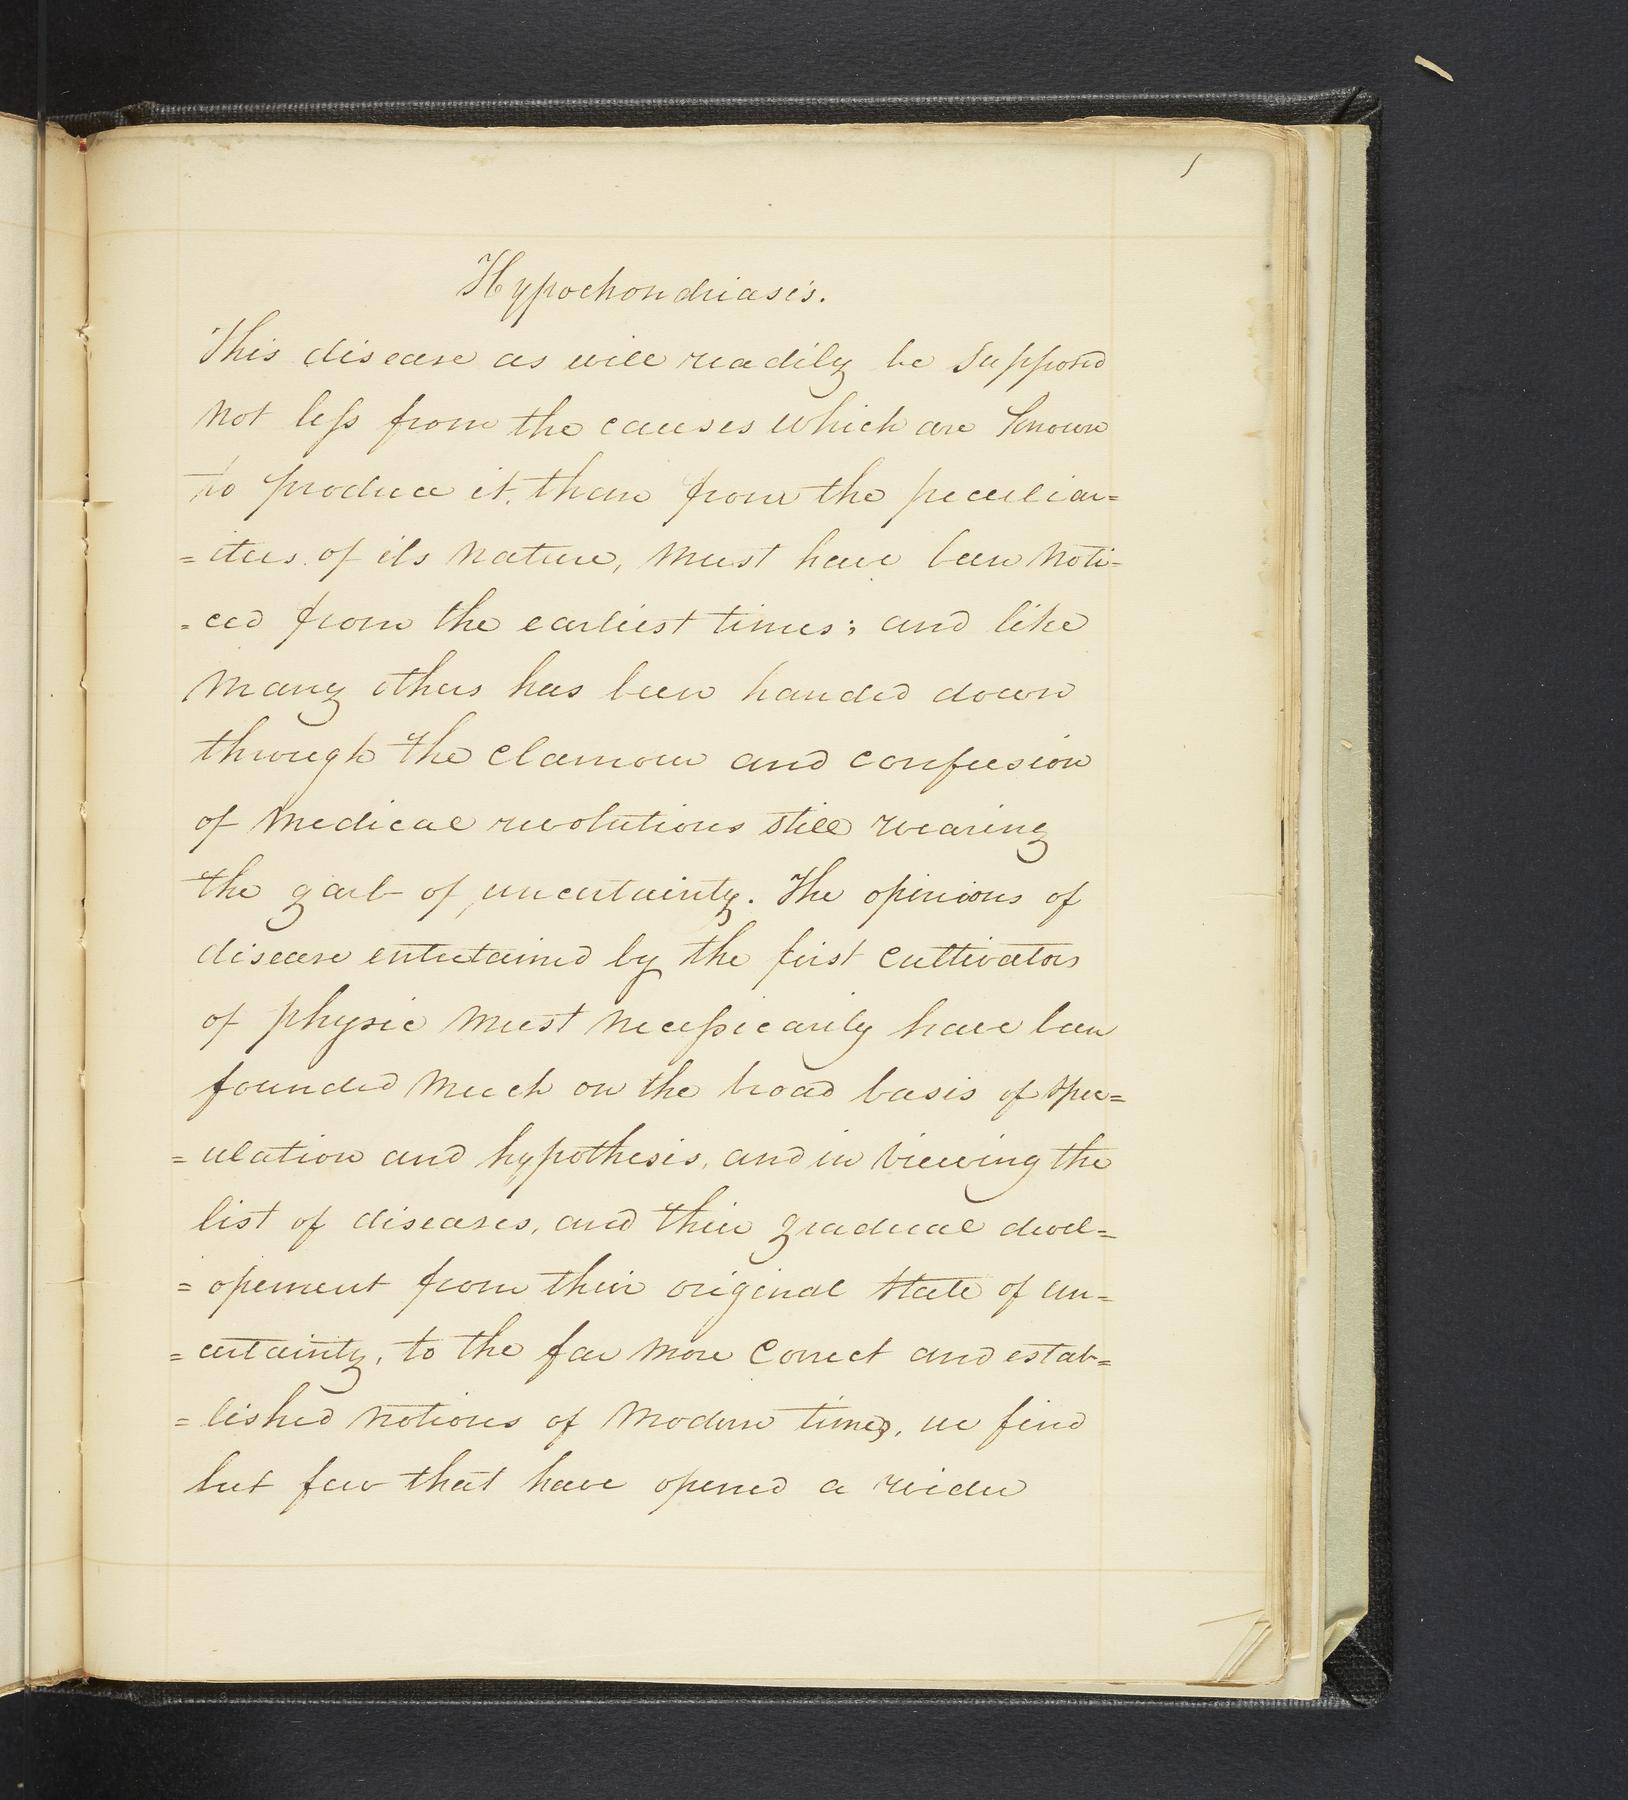 1
Hypochondriasis.
This disease as will readily be supposed
not less from the causes which are known
to produce it, than from the peculiar=
=ities of its nature, must have been noti=
=ced from the earliest times; and like
many others has been handed down
through the clamour and confusion
of medical revolutions still wearing
the garb of uncertainty. The opinions of
disease entertained by the first cultivators
of physic must necessicarily have been
founded much on the broad basis of spec=
=ulation and hypothesis, and in viewing the
list of diseases, and their gradual devel=
=opement from their original state of un=
=certainty, to the far more correct and estab=
=lished notions of modern times, we find
but few that have opened a wider